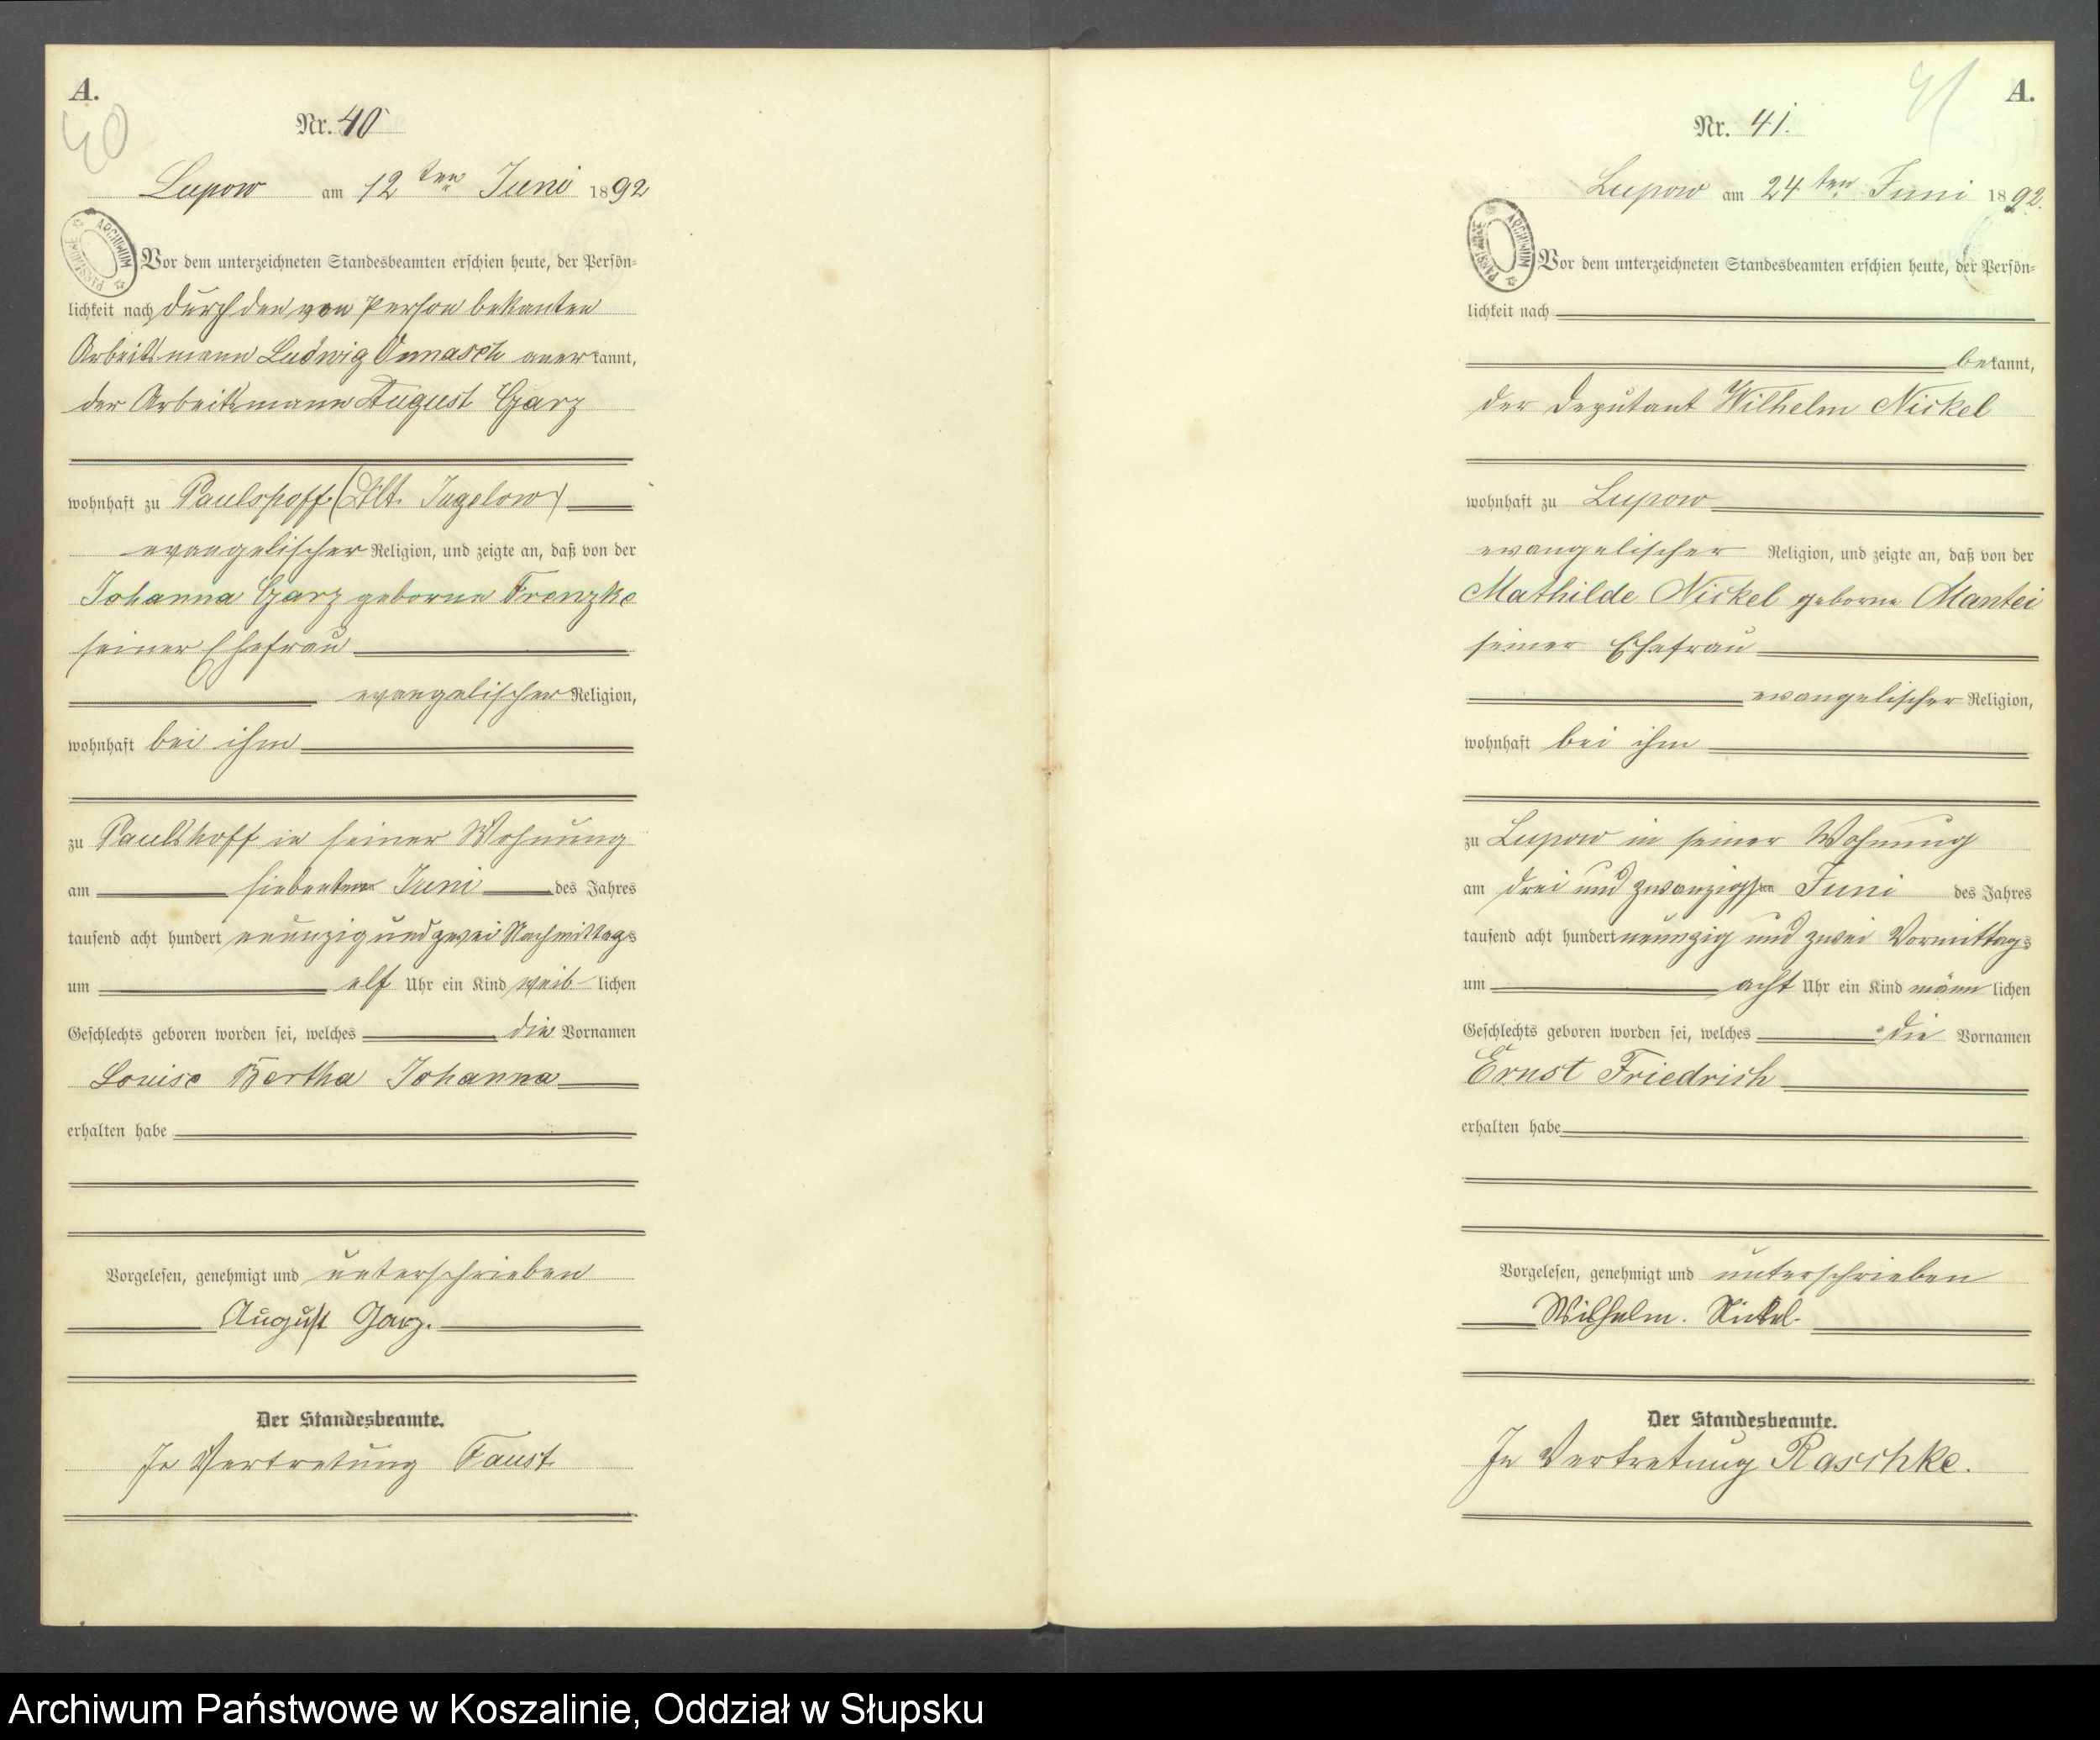 A.
40
Nr. 40
Lupow am 12ten Juni 1892
ARCHIWUM PAŃSTWOWE
Vor dem unterzeichneten Standesbeamten erschien heute, der Persön-
lichkeit nach durch den von Person bekanten
Arbeitsmann Ludwig Onnasch anerkannt,
der Arbeitsmann August Garz
wohnhaft zu Paulshoff (Abt. Jugelow)
evangelischer Religion, und zeigte an, daß von der
Johanna Garz geborne Frenzke
seiner Ehefrau
evangelischer Religion,
wohnhaft bei ihm
zu Paulshoff in seiner Wohnung
am siebenten Juni des Jahres
tausend acht hundert neunzig und zwei Nachmittags
um elf Uhr ein Kind weib- lichen
Geschlechts geboren worden sei, welches die Vornamen
Louise Bertha Johanna
erhalten habe
Vorgelesen, genehmigt und unterschrieben
August Garz.
Der Standesbeamte.
In Vertretung Faust
41
A.
Nr. 41.
Lupow am 24ten Juni 1892.
ARCHIWUM PAŃSTWOWE
Vor dem unterzeichneten Standesbeamten erschien heute, der Persön-
lichkeit nach
bekannt,
der Deputant Wilhelm Nickel
wohnhaft zu Lupow
evangelischer Religion, und zeigte an, daß von der
Mathilde Nickel geborne Mantei
seiner Ehefrau
evangelischer Religion,
wohnhaft bei ihm
zu Lupow in seiner Wohnung
am drei und zwanzigsten Juni des Jahres
tausend acht hundert neunzig und zwei Vormittags
um acht Uhr ein Kind männ lichen
Geschlechts geboren worden sei, welches die Vornamen
Ernst Friedrich
erhalten habe
Vorgelesen, genehmigt und unterschrieben
Wilhelm. Nickel.
Der Standesbeamte.
In Vertretung Raschke.
Archiwum Państwowe w Koszalinie, Oddział w Słupsku